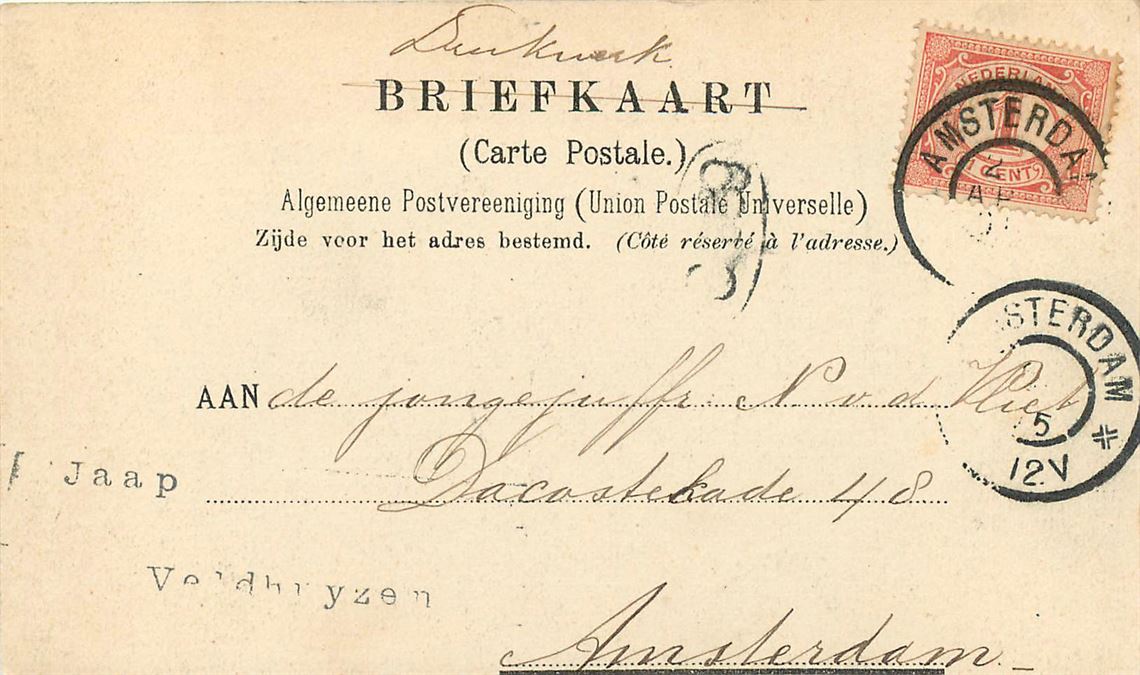 Drukwerk
BRIEFKAART
(Carte Postale.)
Algemeene Postvereeniging (Union Postale Universelle)
Zijde voor het adres bestemd. (Côté réservé à l'adresse.)
NEDERLAND
1
1 CENT
AMSTERDAM
2
AP
AMSTERDAM
5
12V
AAN de jongejuffr. N v. d. Vliet
Dacostakade 48
Amsterdam
Jaap
Veldhuyzen